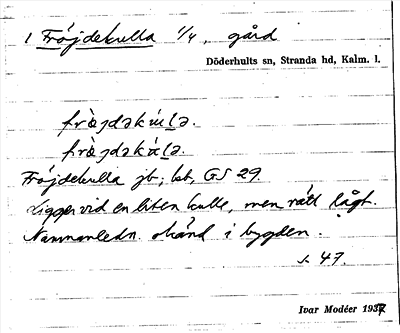 1 Fröjdekulla 1/4, gård
Döderhults sn, Stranda hd, Kalm. l.
frò̀jdəkúlə.
frò̀jdəkálə.
Fröjdekulla jb; kb, GS 29.
Ligger vid en liten kulle, men rätt lågt.
Namnanledn. okänd i bygden.
s. 47.
Ivar Modéer 1937